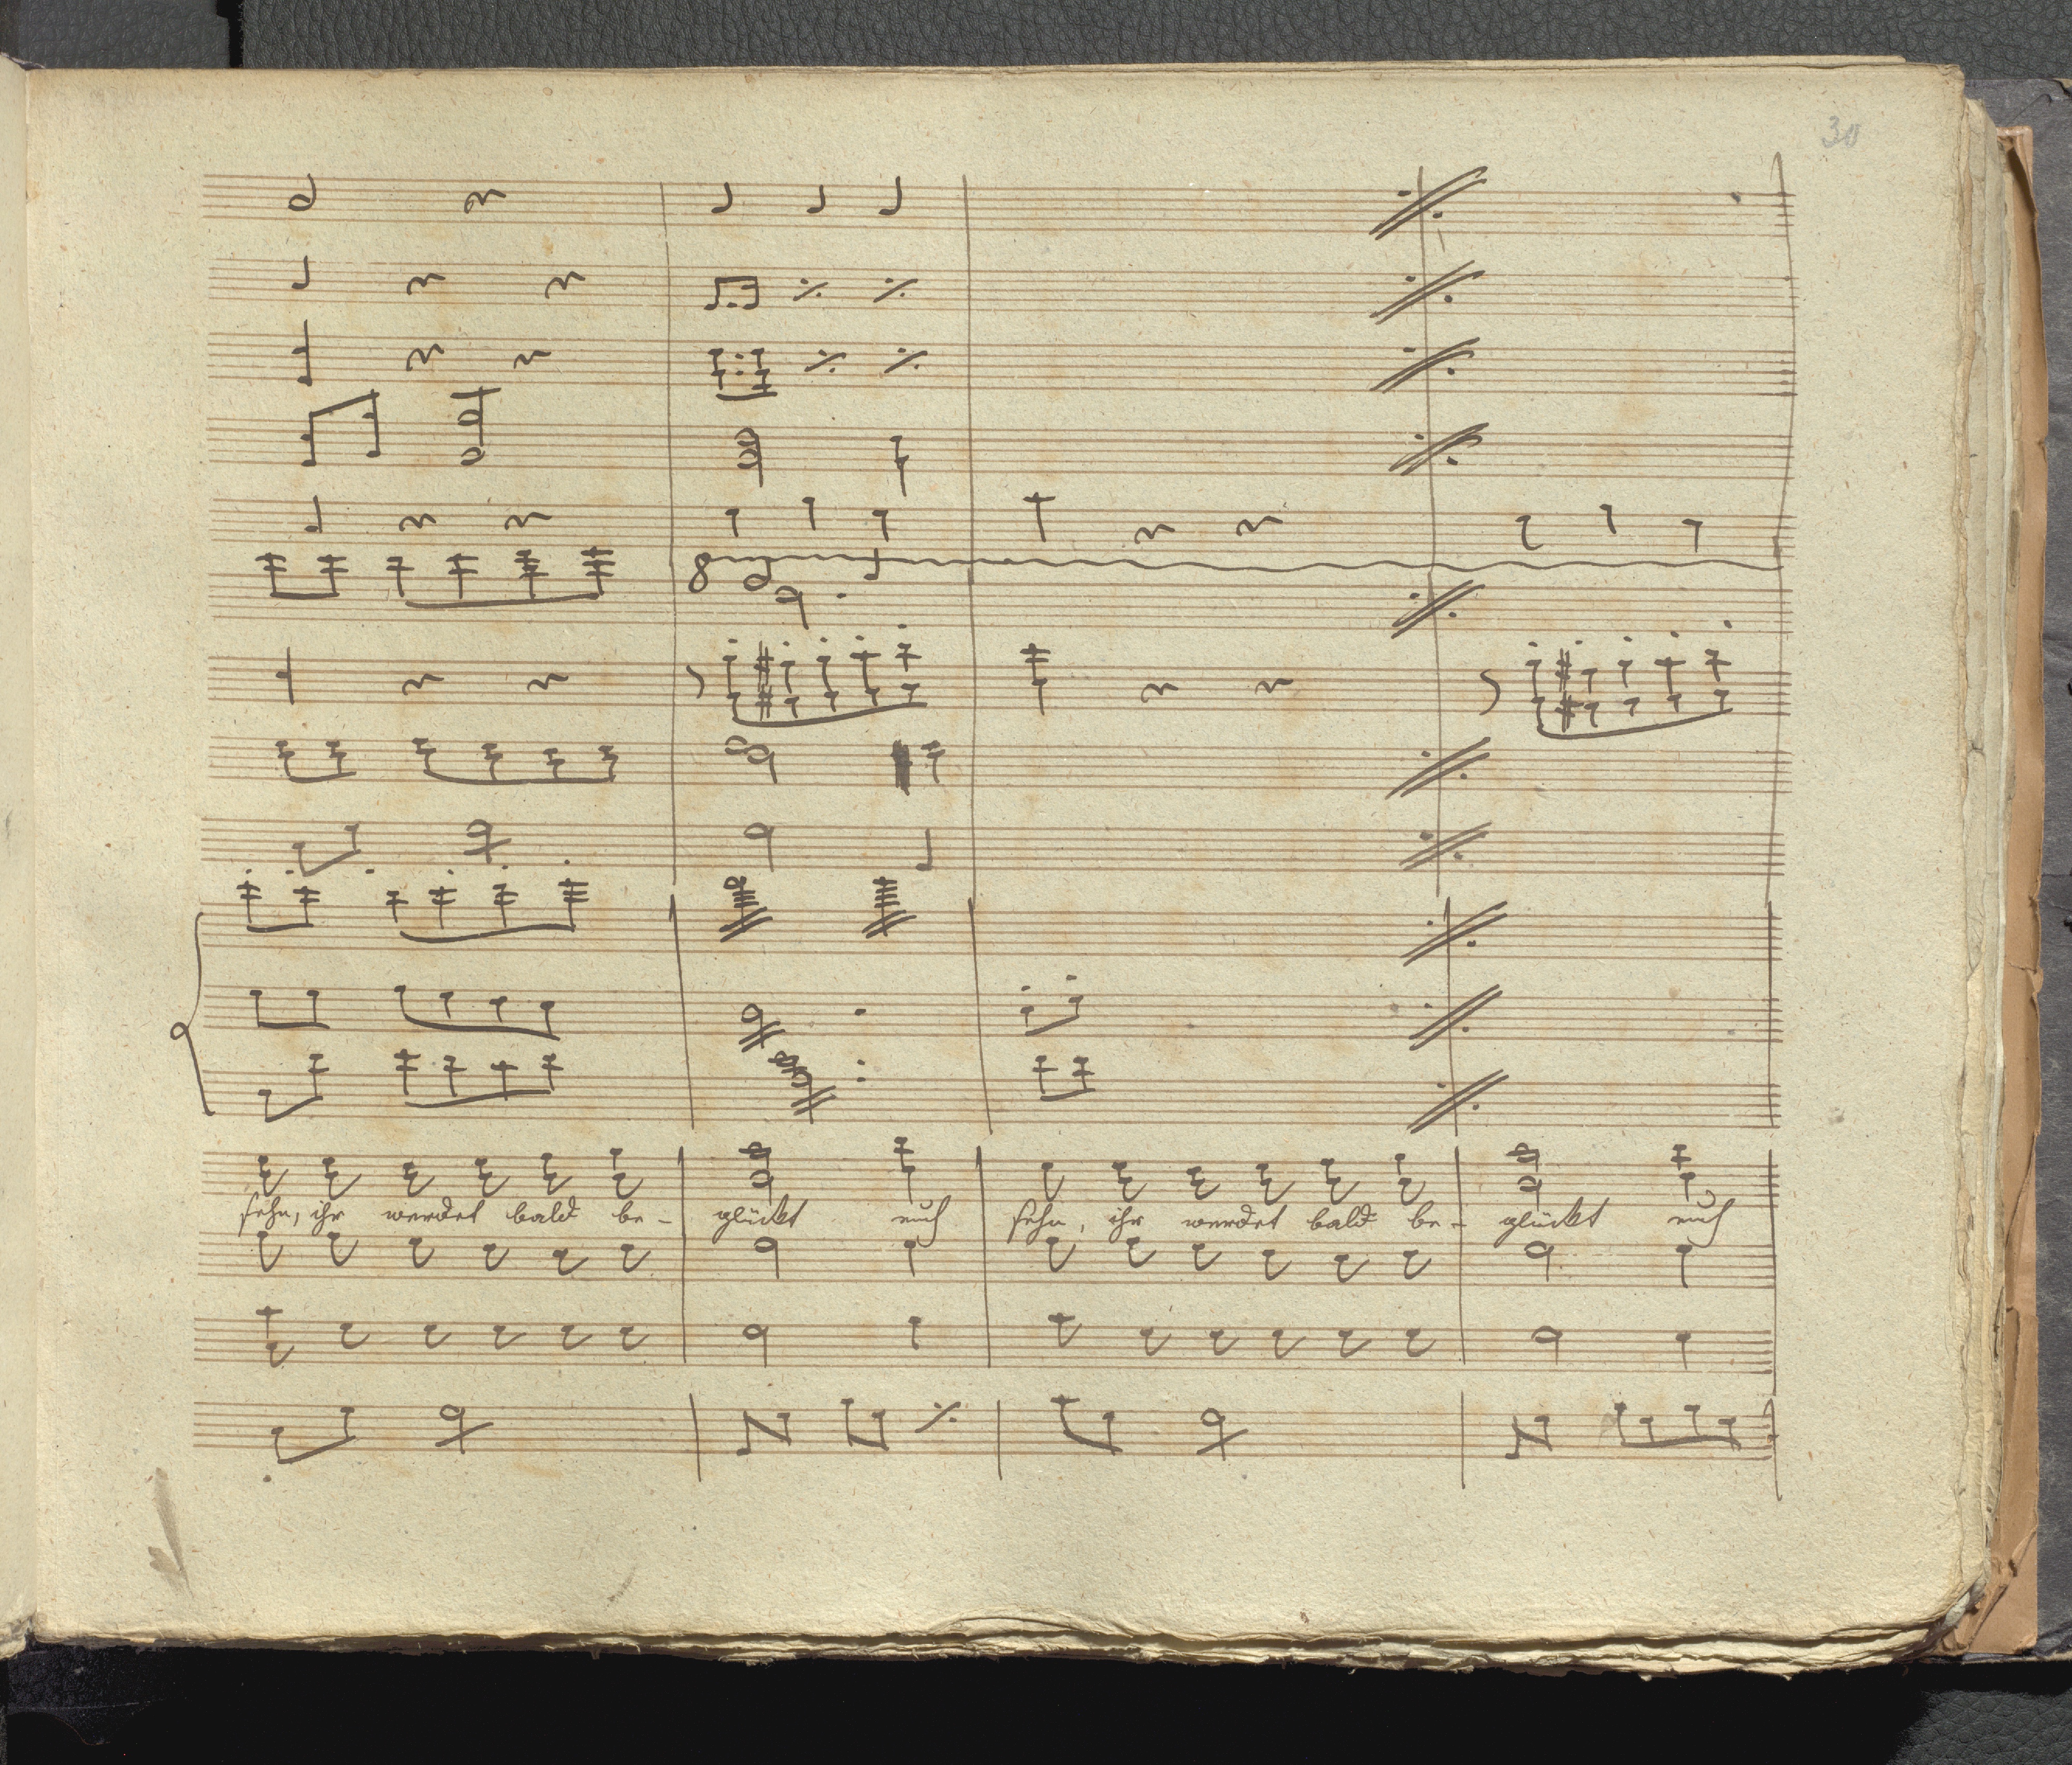 30
8
sehn, ihr werdet bald be- glückt euch sehn, ihr werdet bald be- glückt euch